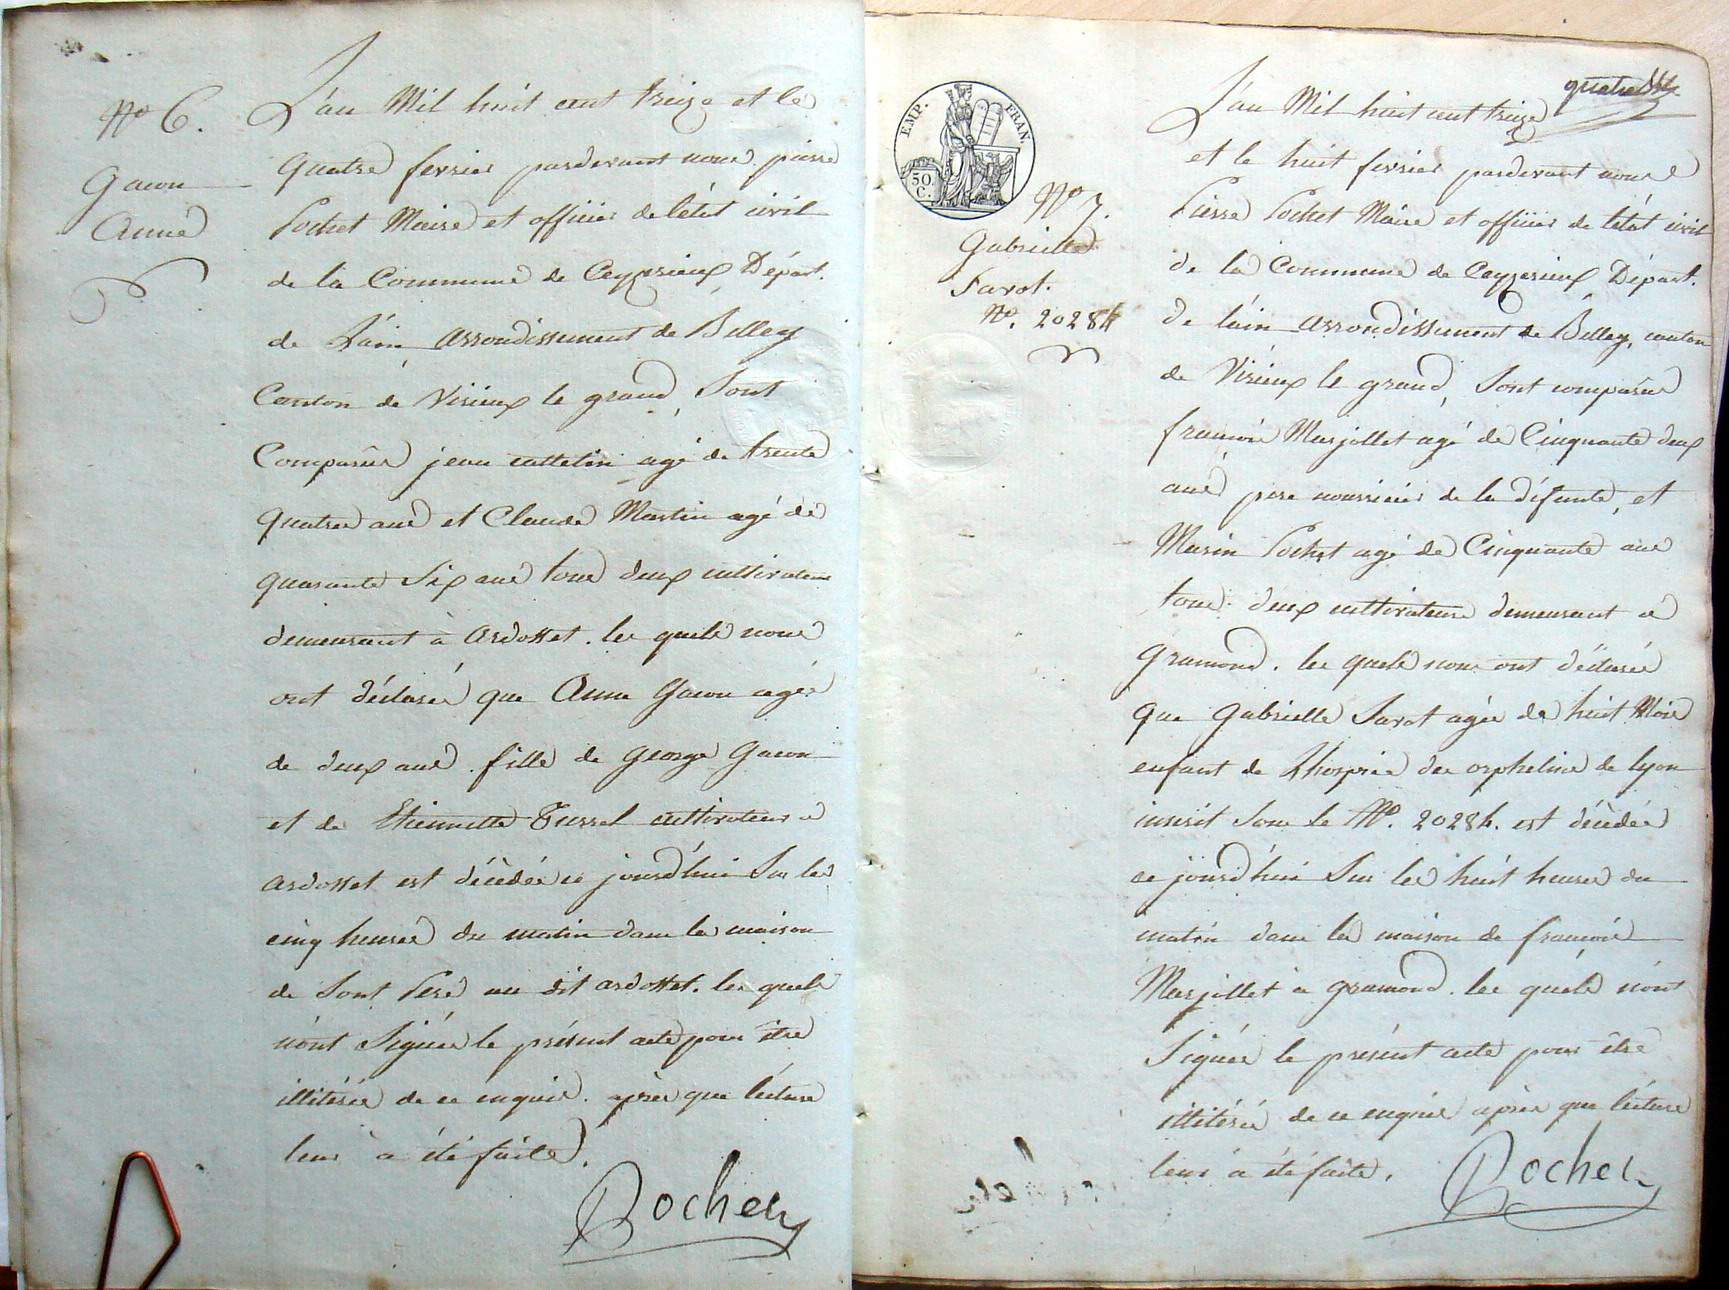 N° 6.
Gacon
Anne
L'an Mil huit cent treize et le
quatre fevrier pardevant nous pierre
Pochet Maire et officier de l'état civil
de la Commune de Ceyzerieux Départ.
de L'ain arrondissement de Belley
Canton de Virieux le grand, Sont
Comparus jean cattelin agé de trente
quatre ans et Claude Martin agé de
quarante Six ans tous deux cultivateurs
demeurant à ardosset. les quels nous
ont déclaré que Anne Gacon agée
de deux ans fille de George Gacon
et de Etiennette cultivateurs a
ardosset est décédée ce jourd'hui Sur les
cinq heures du matin dans la maison
de Sont Pere au dit ardosset. les quels
n'ont Signés le présent acte pour être
illitérés de ce enquis. aprés que lécture
leur a été faite.
Pochet
quatre
EMP. FRAN.
50 C.
N° 7.
Gabrielle
Savot.
N°. 20284
L'an Mil huit cent treize
et le huit fevrier pardevant nous
Pierre Pochet Maire et officier de l'état civil
de la Commune de Ceyzerieux Départ.
de l'ain arrondissement de Belley, canton
de Virieux le grand, Sont comparus
francois Marjollet agé de Cinquante deux
ans pere nourricier de la défunte, et
Marin Pochet agé de Cinquante ans
tous deux cultivateurs demeurant a
gramond. les quels nous ont déclarés
que gabrielle Savot agée de huit Mois
enfant de Lhospice des orphelins de lyon
inscrit Sous le N°. 20284. est décédée
ce jourd'hui Sur les huit heures du
matin dans la maison de francois
Marjollet a gramond. les quels n'ont
Signés le présent acte pour être
illitérés de ce enquis aprés que lécture
leur a été faite.
Pochet